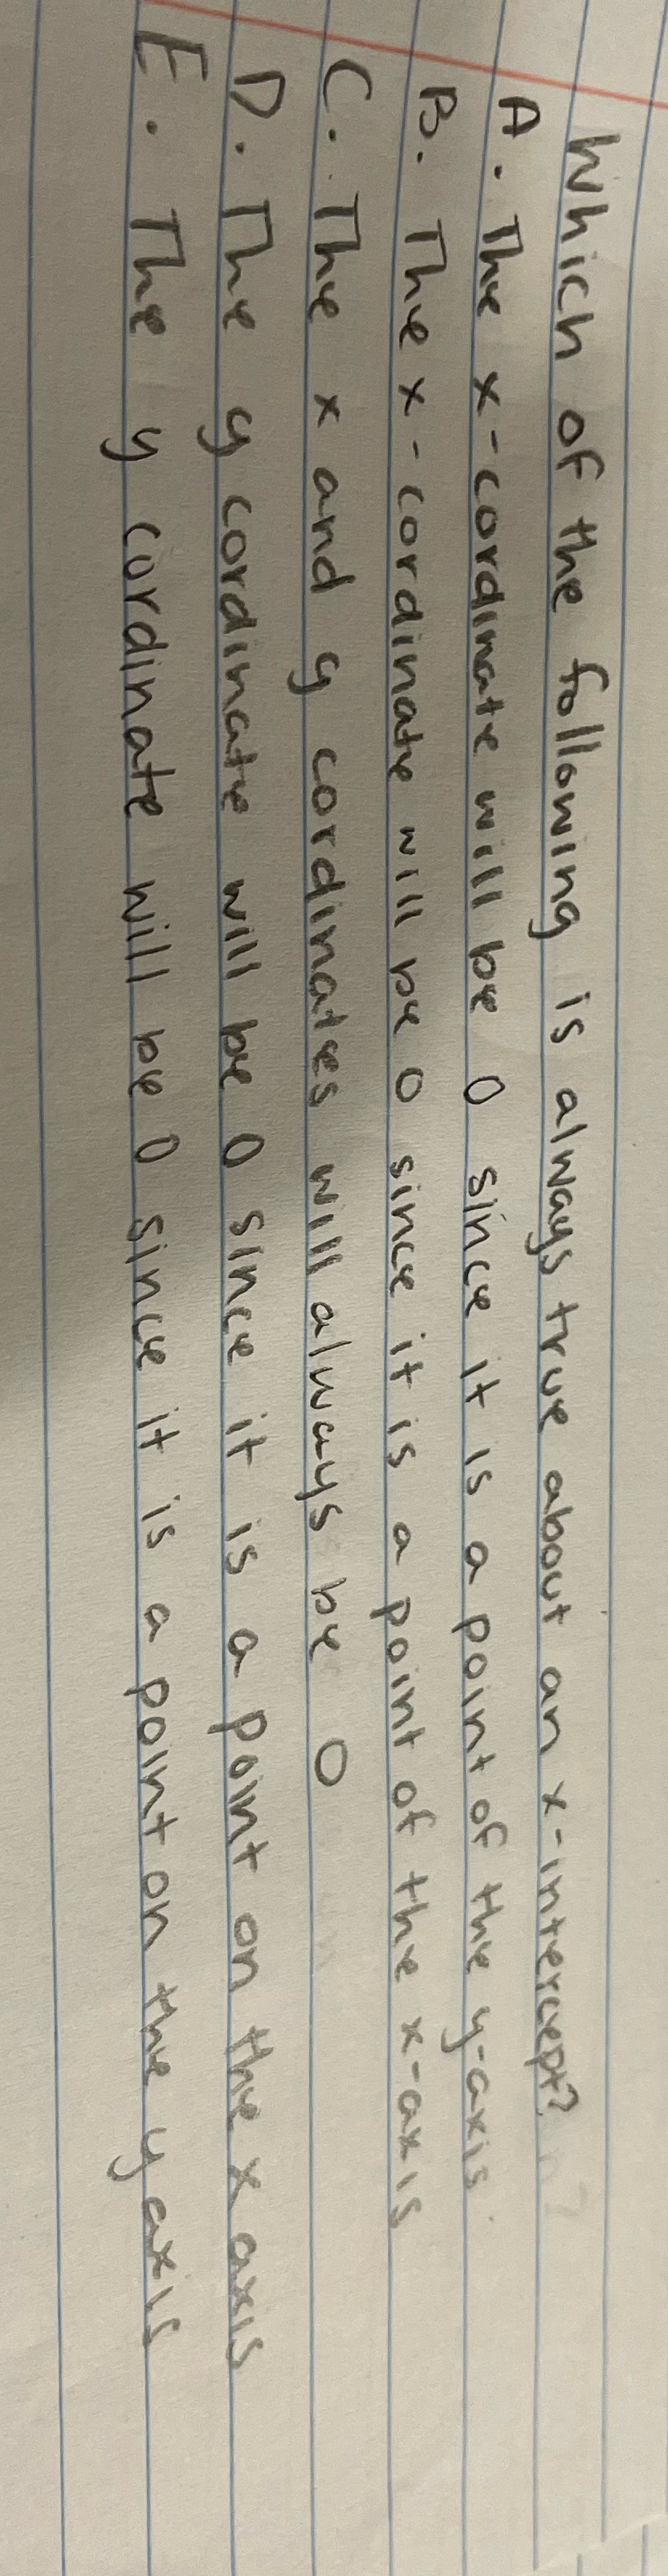 Which of the following is always true about an x-intercept?
A. The x-cordinate will be 0 since it is a point of the y-axis
B. The x-cordinate will be 0 since it is a point of the x-axis
C. The x and y cordinates will always be 0
D. The y cordinate will be 0 since it is a point on the x axis
E. The y cordinate will be 0 since it is a point on the y axis